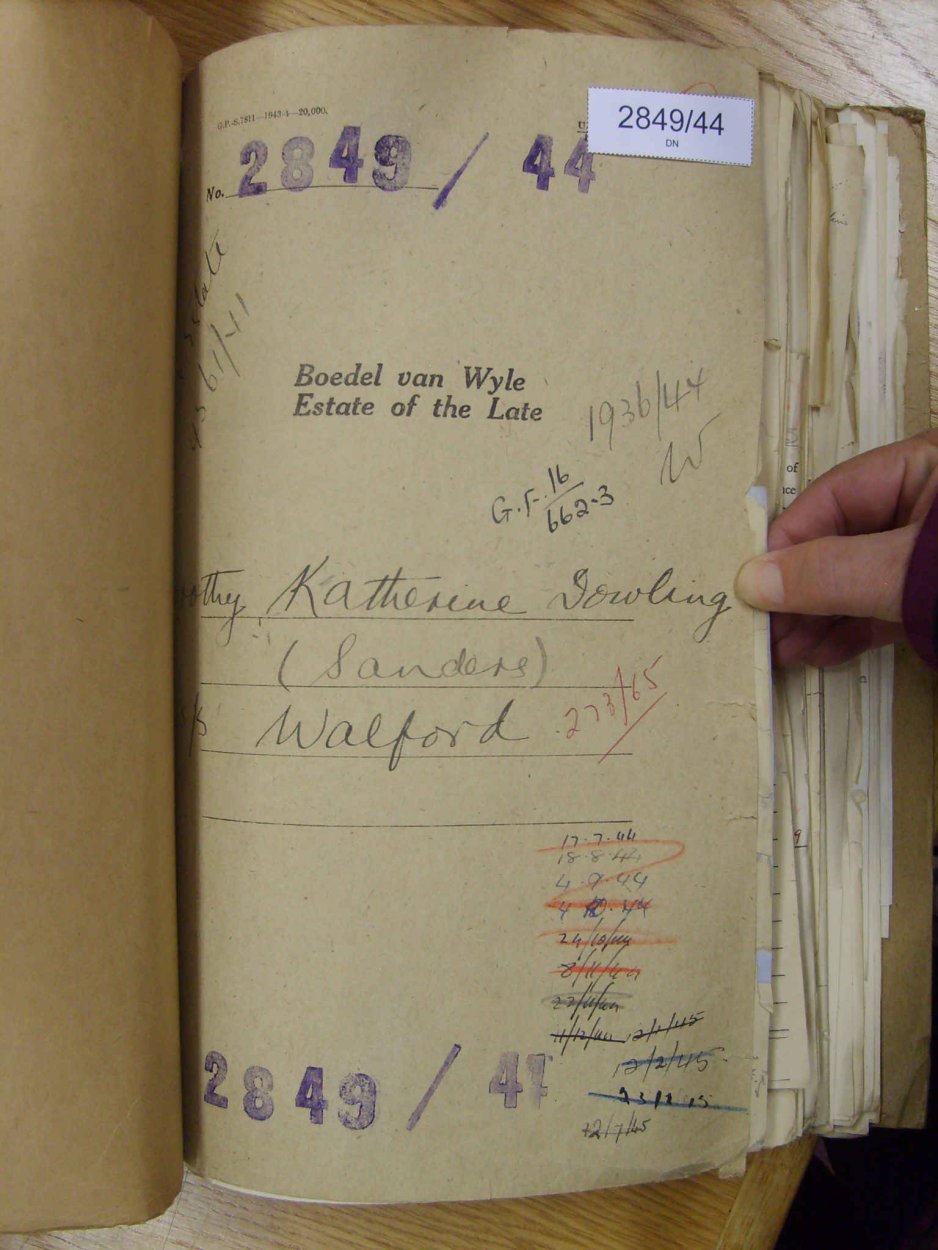 G.P.-S.7811—1943-4—20,000.
2849/44
DN
No. 2849/44
Boedel van Wyle
Estate of the Late
1936/44
G.F. 16/662-3
othy Katherine Dowling
(Sanders)
Walford
273/65
17.7.44
18.8.44
4.9.44
4 10.44
24/10/44
8/11/44
22/11/44
11/12/44 12/1/45
12/2/45
12/7/45
2849/44
of